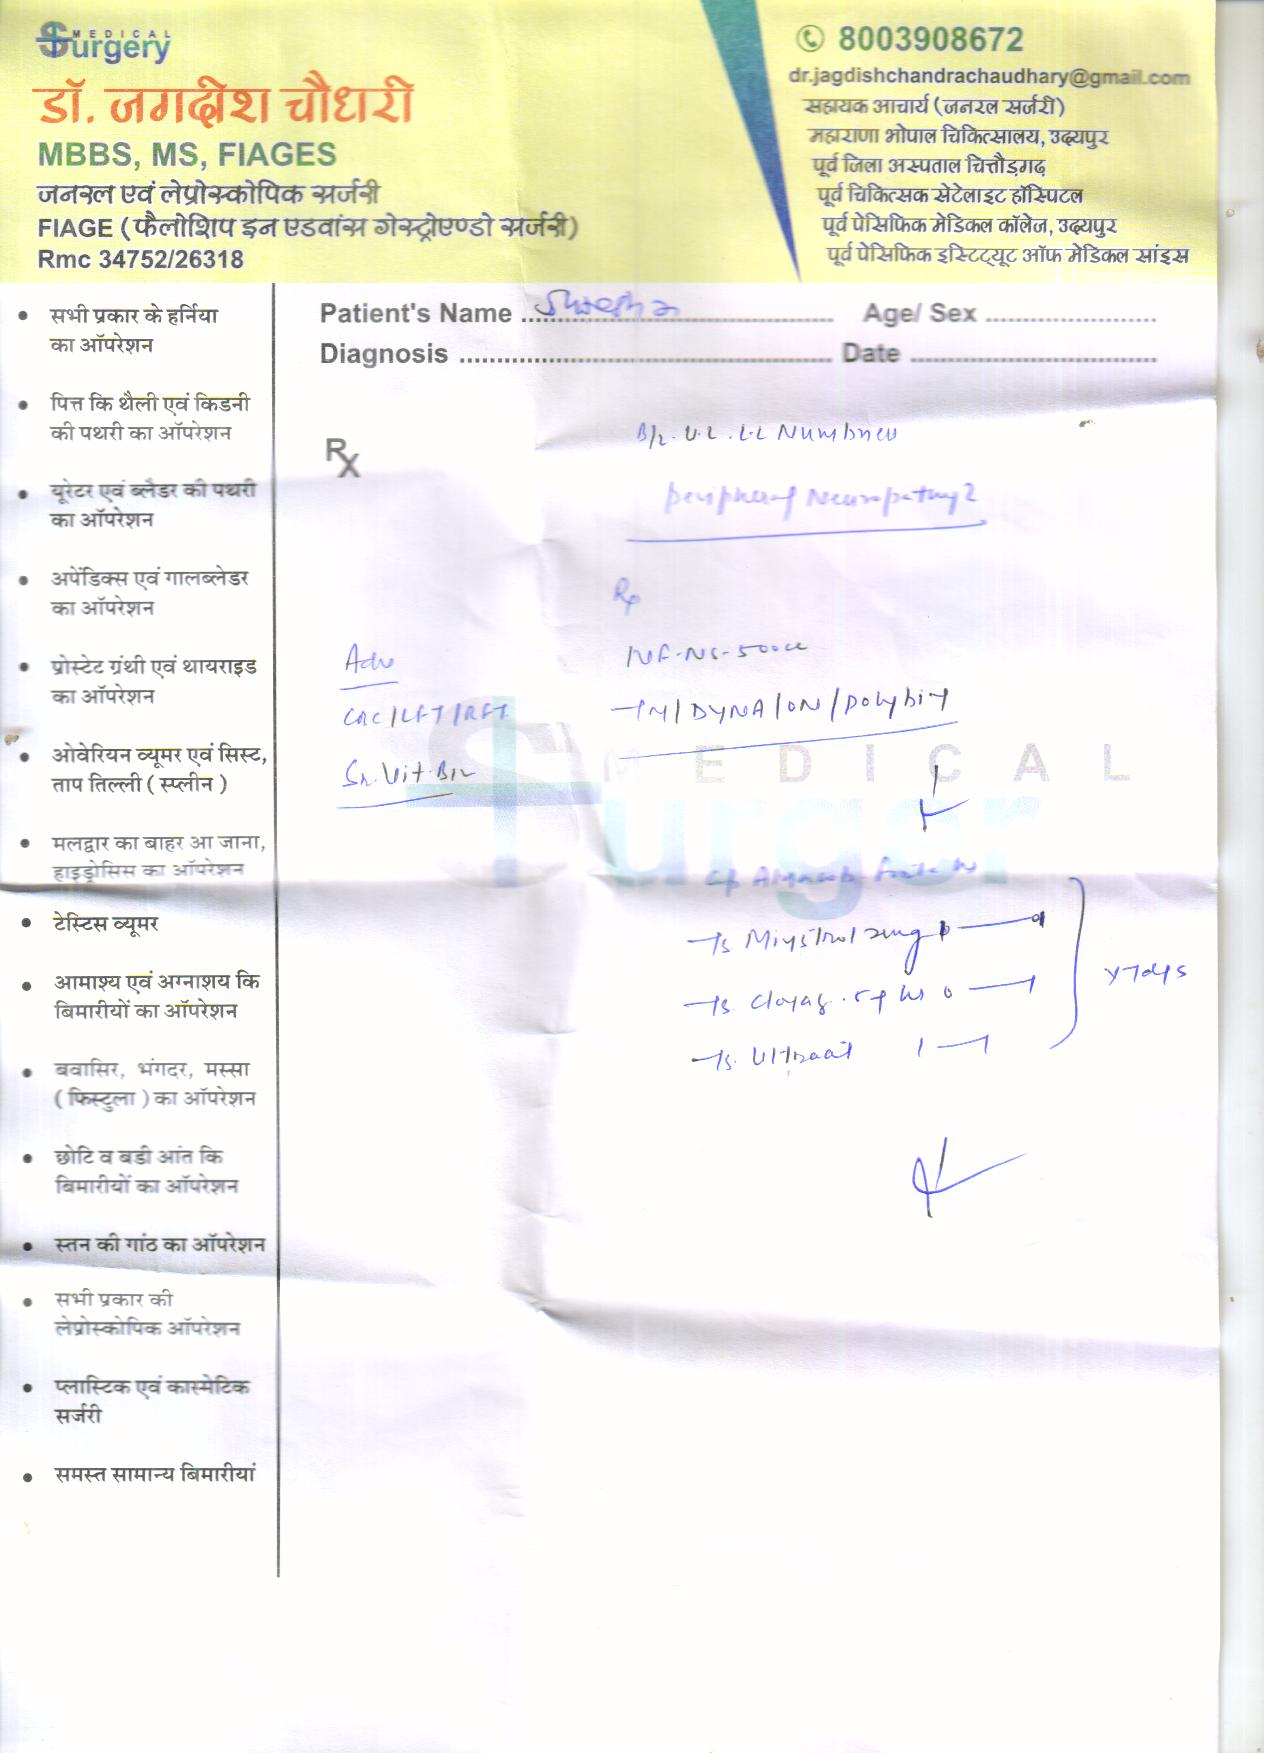 MEDICAL
Surgery
डॉ. जगदीश चौधरी
MBBS, MS, FIAGES
जनरल एवं लेप्रोस्कोपिक सर्जरी
FIAGE ( फैलोशिप इन एडवांस गेस्ट्रोएण्डो सर्जरी)
Rmc 34752/26318
8003908672
dr.jagdishchandrachaudhary@gmail.com
सहायक आचार्य (जनरल सर्जरी)
महाराणा भोपाल चिकित्सालय, उदयपुर
पूर्व जिला अस्पताल चित्तौड़गढ़
पूर्व चिकित्सक सेटेलाइट हॉस्पिटल
पूर्व पेसिफिक मेडिकल कॉलेज, उदयपुर
पूर्व पेसिफिक इस्टिट्यूट ऑफ मेडिकल सांइस
Patient's Name ........ Age/ Sex ........
Diagnosis ........ Date ........
• सभी प्रकार के हर्निया
का ऑपरेशन
• पित्त कि थैली एवं किडनी
की पथरी का ऑपरेशन
• यूरेटर एवं ब्लैडर की पथरी
का ऑपरेशन
• अपेंडिक्स एवं गालब्लेडर
का ऑपरेशन
• प्रोस्टेट ग्रंथी एवं थायराइड
का ऑपरेशन
• ओवेरियन व्यूमर एवं सिस्ट,
ताप तिल्ली ( स्प्लीन )
• मलद्वार का बाहर आ जाना,
हाइड्रोसिस का ऑपरेशन
• टेस्टिस व्यूमर
• आमाश्य एवं अग्नाशय कि
बिमारीयों का ऑपरेशन
• बवासिर, भंगदर, मस्सा
( फिस्टुला ) का ऑपरेशन
• छोटि व बडी आंत कि
बिमारीयों का ऑपरेशन
• स्तन की गांठ का ऑपरेशन
• सभी प्रकार की
लेप्रोस्कोपिक ऑपरेशन
• प्लास्टिक एवं कास्मेटिक
सर्जरी
• समस्त सामान्य बिमारीयां
Rx
B/L. U.L. L.L Numbness
peripheral Neuropathy?
Rp
Adv
NS-500cc
CBC/LFT/RFT
DYNA/ON/polybit
Sr. Vit. B12
MEDICAL
Surger
x 7 days